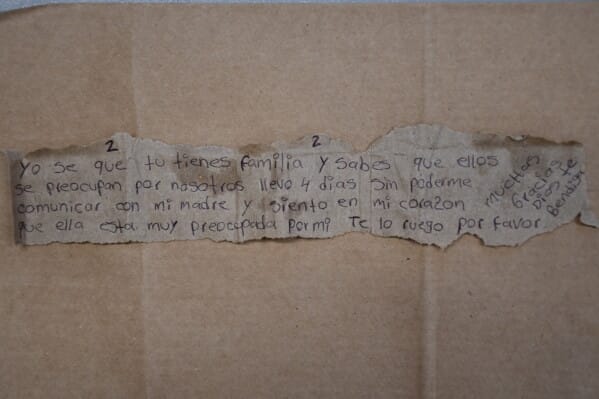 2 2
Yo se que tu tienes familia y sabes que ellos
se preocupan por nosotros llevo 4 dias sin poderme
comunicar con mi madre y siento en mi corazon
que ella esta muy preocupada por mi Te lo ruego por favor.
muchas
Gracias
Dios te
Bendiga